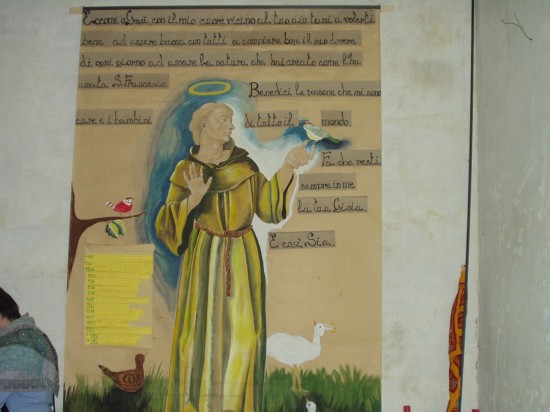 Eccomi o Gesù, con il mio cuore vicino al tuo aiutami a volerti
bene ad essere buona con tutti a compiere bene il mio dovere
di ogni giorno ad amare la natura che hai creato come l'ha
amata S. Francesco.
Benedici le persone che mi sono
care e i bambini di tutto il mondo.
Fa che resti
sempre in me
la tua Gioia.
E così Sia.